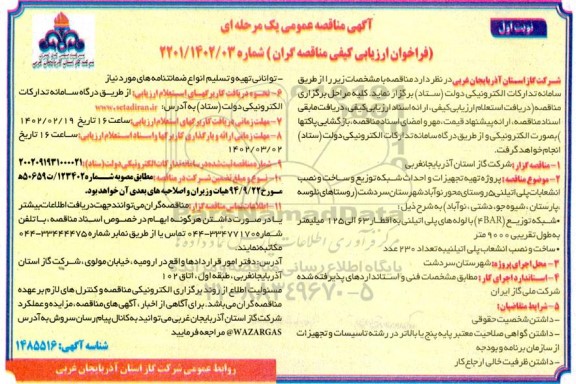 نوبت اول
آگهی مناقصه عمومی یک مرحله ای
(فراخوان ارزیابی کیفی مناقصه گران) شماره ۲۲۰۱/۱۴۰۲/۰۳
شرکت گاز استان آذربایجان غربی در نظر دارد مناقصه با مشخصات زیر را از طریق
سامانه تدارکات الکترونیکی دولت (ستاد) برگزار نماید. کلیه مراحل برگزاری
مناقصه (دریافت استعلام ارزیابی کیفی، ارائه اسناد ارزیابی کیفی، دریافت مابقی
اسناد مناقصه، ارائه پیشنهاد قیمت، مهر و امضای اسناد مناقصه، بازگشایی پاکتها
) بصورت الکترونیکی و از طریق درگاه سامانه تدارکات الکترونیکی دولت (ستاد)
انجام خواهد گرفت.
۱- مناقصه گزار: شرکت گاز استان آذربایجانغربی
۲- موضوع مناقصه: پروژه تهیه تجهیزات و احداث شبکه توزیع و ساخت و نصب
انشعابات پلی اتیلنی روستای محور نوآباد شهرستان سردشت (روستاهای تلوسه
، پارستان، شیوه جو، دشتی، نوآباد) به شرح ذیل:
شبکه توزیع (۴BAR) با لوله های پلی اتیلنی به اقطار ۶۳ الی ۱۲۵ میلیمتر
به طول تقریبی ۹۰۰۰ متر
ساخت و نصب انشعاب پلی اتیلنی به تعداد ۲۳۰ عدد
۳- محل اجرای پروژه: شهرستان سردشت
۴- استاندارد اجرای کار: مطابق مشخصات فنی و استانداردهای پذیرفته شده
شرکت ملی گاز ایران
۵- شرایط متقاضیان:
- داشتن شخصیت حقوقی
- داشتن گواهی صلاحیت معتبر پایه پنج یا بالاتر در رشته تاسیسات و تجهیزات
از سازمان برنامه و بودجه
- داشتن ظرفیت خالی ارجاع کار
- توانائی تهیه و تسلیم انواع ضمانتنامه های مورد نیاز
۶- نحوه دریافت کاربرگهای استعلام ارزیابی: از طریق درگاه سامانه تدارکات
الکترونیکی دولت (ستاد) به آدرس: www.setadiran.ir
۷- مهلت زمانی دریافت کاربرگهای استعلام ارزیابی: ساعت ۱۶ تاریخ ۱۴۰۲/۰۲/۱۹
۸- مهلت زمانی ارائه و بارگذاری کاربرگها و اسناد استعلام ارزیابی: ساعت ۱۶ تاریخ
۱۴۰۲/۰۳/۰۲
۹- شماره مناقصه ثبت شده در سامانه تدارکات الکترونیکی دولت (ستاد): ۲۰۰۲۰۹۱۹۳۱۰۰۰۰۲۱
۱۰- نوع و مبلغ تضمین شرکت در مناقصه: مطابق مصوبه شماره ۱۲۳۴۰۲/ت۵۰۶۵۹ه
مورخ ۹۴/۹/۲۲ هیات وزیران و اصلاحیه های بعدی آن خواهد بود.
۱۱- اطلاعات تماس مناقصه گزار: مناقصه گران می توانند جهت دریافت اطلاعات بیشتر
یا در صورت داشتن هرگونه ابهام در خصوص اسناد مناقصه، با تلفن
شماره ۳۳۴۷۷۱۷۰-۰۴۴ تماس یا از طریق نمابر شماره ۳۳۴۴۴۴۷۵-۰۴۴
مکاتبه نمایند.
آدرس: دفتر امور قراردادها واقع در ارومیه، خیابان مولوی، شرکت گاز استان
آذربایجان غربی، طبقه اول، اتاق ۱۰۲
مسئولیت اطلاع از روند برگزاری الکترونیکی مناقصه و کنترل های لازم بر عهده
مناقصه گران می باشد. برای آگاهی از اخبار، آگهی های مناقصه، مزایده و عملکرد
شرکت گاز استان آذربایجان غربی می توانید به کانال پیام رسان سروش به آدرس
@WAZARGAS مراجعه فرمایید
شناسه آگهی: ۱۴۸۵۵۱۶
روابط عمومی شرکت گاز استان آذربایجان غربی